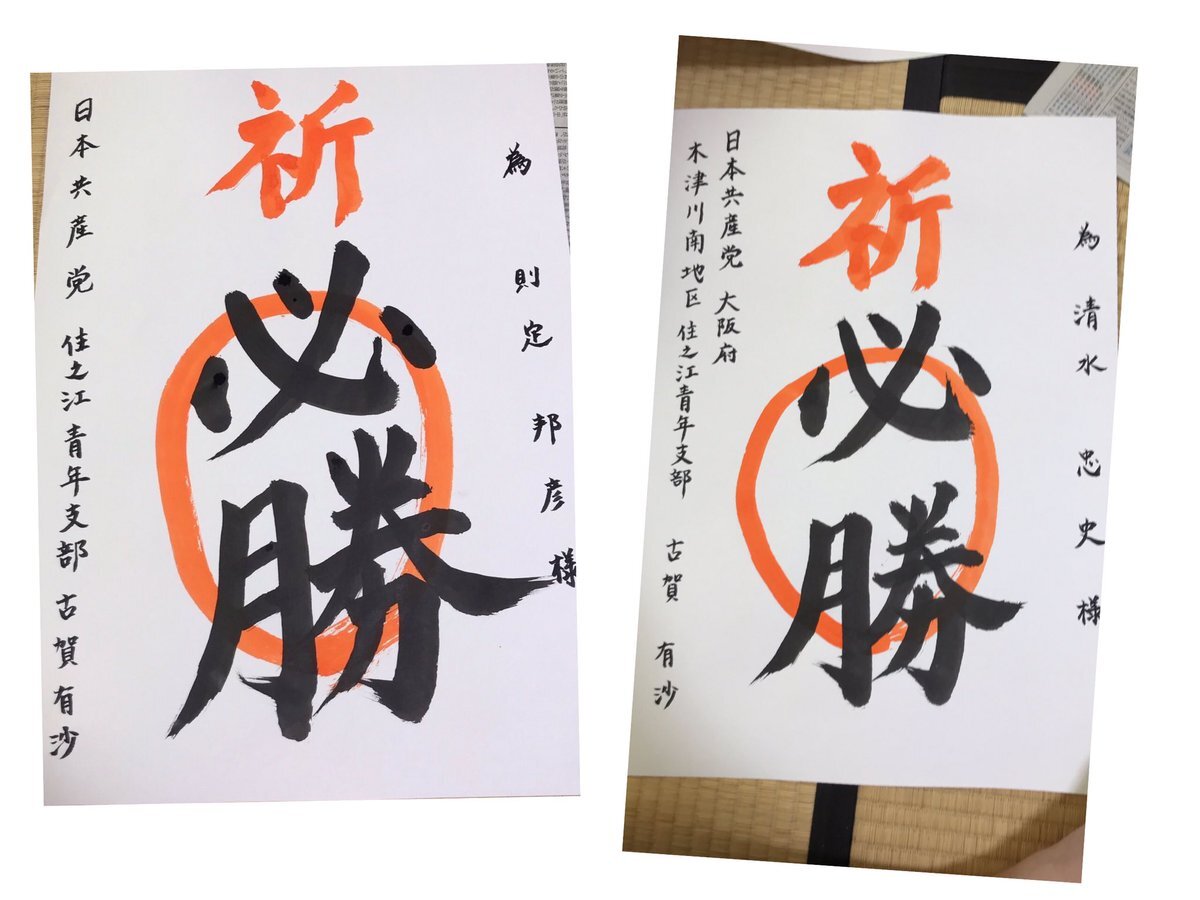 為 則定 邦彦 様
祈
必勝
日本共産党 住之江青年支部 古賀有沙
為 清水 忠史 様
祈
必勝
日本共産党 大阪府
木津川南地区 住之江青年支部 古賀 有沙